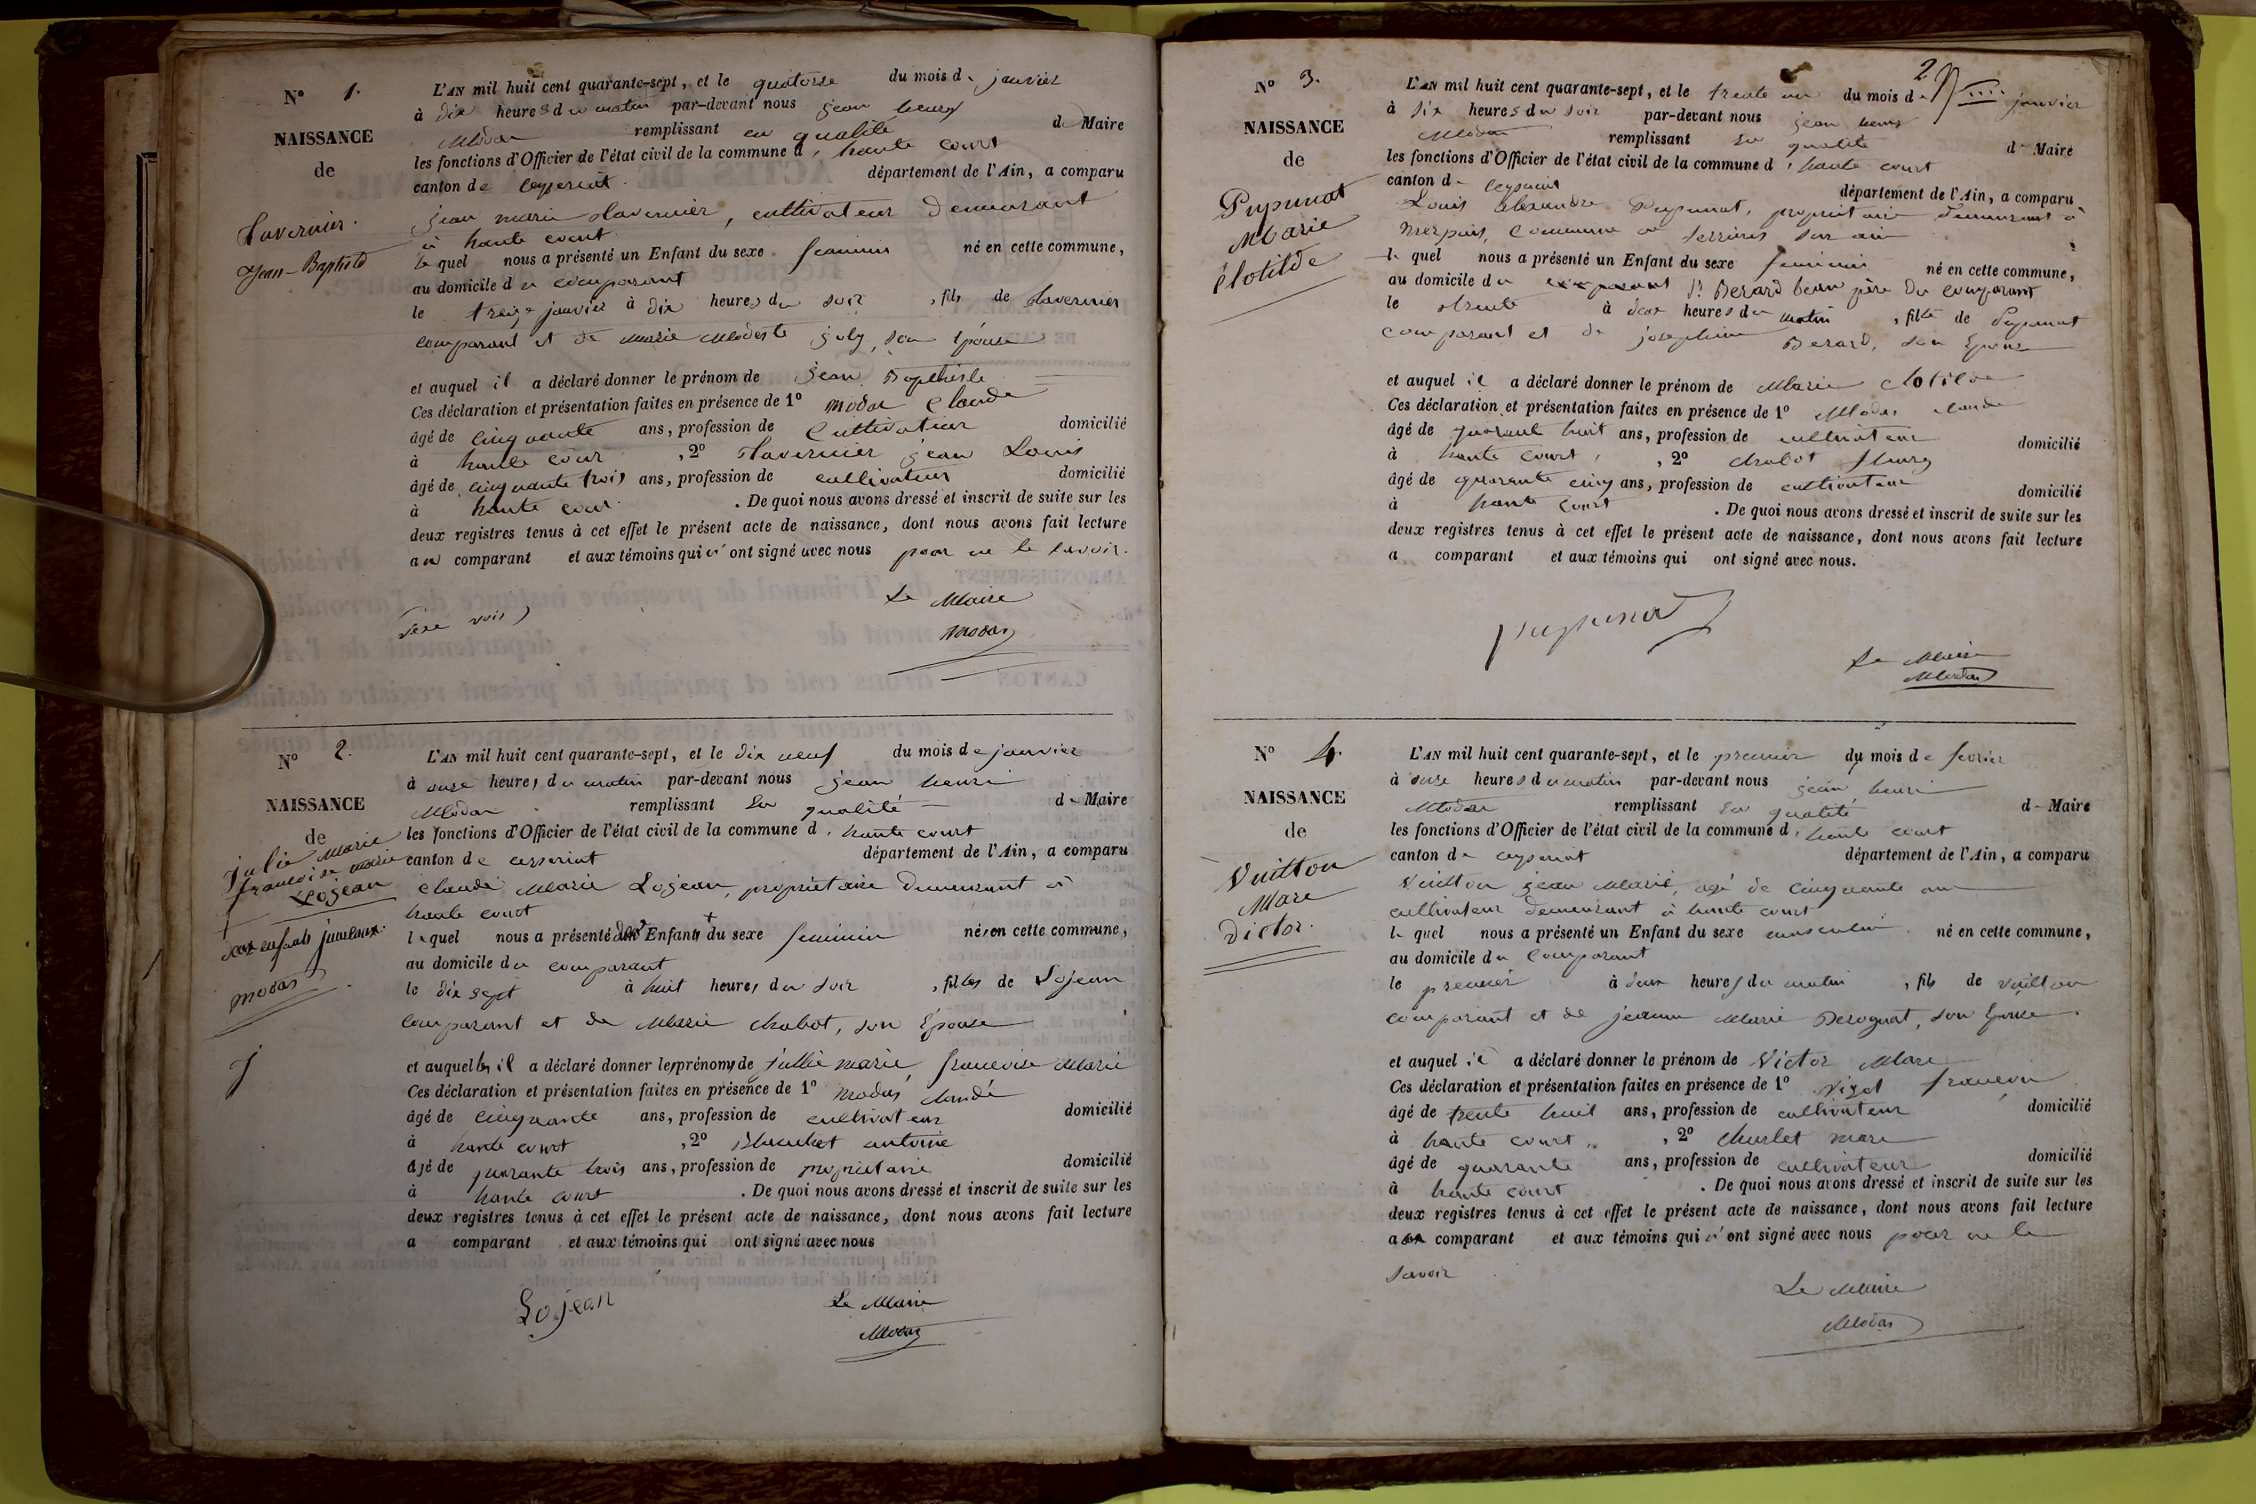 N° 1.
NAISSANCE
de
Tavernier.
Jean-Baptiste
L'AN mil huit cent quarante-sept, et le quatorse du mois de janvier
à dix heures du matin par-devant nous jean henry
Modas remplissant en qualité de Maire
les fonctions d'Officier de l'état civil de la commune d, haute court
canton de ceyseriat département de l'Ain, a comparu
jean marie tavernier, cultivateur demeurant
à haute court
le quel nous a présenté un Enfant du sexe feminin né en cette commune,
au domicile du comparant
le treize janvier à dix heures du soir, fils de tavernier
comparant et de marie modeste joly, son épouse
et auquel il a déclaré donner le prénom de jean Baptiste
Ces déclaration et présentation faites en présence de 1° modas claude
âgé de cinquante ans, profession de cultivateur domicilié
à haute cour, 2° tavernier jean Louis
âgé de cinquante trois ans, profession de cultivateur domicilié
à haute cour. De quoi nous avons dressé et inscrit de suite sur les
deux registres tenus à cet effet le présent acte de naissance, dont nous avons fait lecture
au comparant et aux témoins qui n'ont signé avec nous pour ne le savoir.
Le Maire
Modas
N° 2.
NAISSANCE
de
julie Marie
francoise marie
Lojean
deux enfants jumeaux.
modas
L'AN mil huit cent quarante-sept, et le dix neuf du mois de janvier
à onze heures du matin par-devant nous jean henri
Modas remplissant en qualité de Maire
les fonctions d'Officier de l'état civil de la commune d, haute court
canton de ceyseriat département de l'Ain, a comparu
claude Marie Lojean, propriétaire demeurant à
haute court
lequel nous a présenté deux Enfants + du sexe feminin nés en cette commune,
au domicile du comparant
le dix sept à huit heures du soir, filles de Lojean
comparant et de Marie chabot, son Épouse
et auquelles il a déclaré donner les prénoms de jullie marie francoise Marie
Ces déclaration et présentation faites en présence de 1° modas claude
âgé de cinquante ans, profession de cultivateur domicilié
à haute court, 2° Blanchet antoine
âgé de quarante trois ans, profession de propriétaire domicilié
à haute court. De quoi nous avons dressé et inscrit de suite sur les
deux registres tenus à cet effet le présent acte de naissance, dont nous avons fait lecture
a comparant et aux témoins qui ont signé avec nous
Lojean
Le Maire
Modas
2
N° 3.
NAISSANCE
de
Pupunat
Marie
Clotilde
L'AN mil huit cent quarante-sept, et le trente un du mois de janvier
à six heures du soir par-devant nous jean henry
Modas remplissant en qualité de Maire
les fonctions d'Officier de l'état civil de la commune d, haute court
canton de ceyseriat département de l'Ain, a comparu
Louis alexandre Pupunat, propriétaire demeurant à
merpuis, commune de serrieres sur ain
le quel nous a présenté un Enfant du sexe feminin né en cette commune,
au domicile du comparant Sr Berard beau père du comparant
le trente à deux heures du matin, fille de Pupunat
comparant et de josephine Berard, son Epouse
et auquel il a déclaré donner le prénom de Marie clotilde
Ces déclaration et présentation faites en présence de 1° Modas claude
âgé de quarante huit ans, profession de cultivateur domicilié
à haute court, 2° chabot fleury
âgé de quarante cinq ans, profession de cultivateur domicilié
à haute court. De quoi nous avons dressé et inscrit de suite sur les
deux registres tenus à cet effet le présent acte de naissance, dont nous avons fait lecture
a comparant et aux témoins qui ont signé avec nous.
pupunat
Le Maire
Modas
N° 4.
NAISSANCE
de
Vuitton
Marc
Victor.
L'AN mil huit cent quarante-sept, et le premier du mois de fevrier
à onze heures du matin par-devant nous jean henri
Modas remplissant en qualité de Maire
les fonctions d'Officier de l'état civil de la commune d, haute court
canton de ceyseriat département de l'Ain, a comparu
Vuitton jean Marie, agé de cinquante ans
cultivateur demeurant à haute court
le quel nous a présenté un Enfant du sexe masculin né en cette commune,
au domicile du comparant
le premier à deux heures du matin, fils de vuitton
comparant et de jeanne Marie Perognat, son épouse.
et auquel il a déclaré donner le prénom de Victor Marc
Ces déclaration et présentation faites en présence de 1° françois
âgé de trente huit ans, profession de cultivateur domicilié
à haute court, 2° churlet marc
âgé de quarante ans, profession de cultivateur domicilié
à haute court. De quoi nous avons dressé et inscrit de suite sur les
deux registres tenus à cet effet le présent acte de naissance, dont nous avons fait lecture
au comparant et aux témoins qui n'ont signé avec nous pour ne le
savoir
Le Maire
Modas